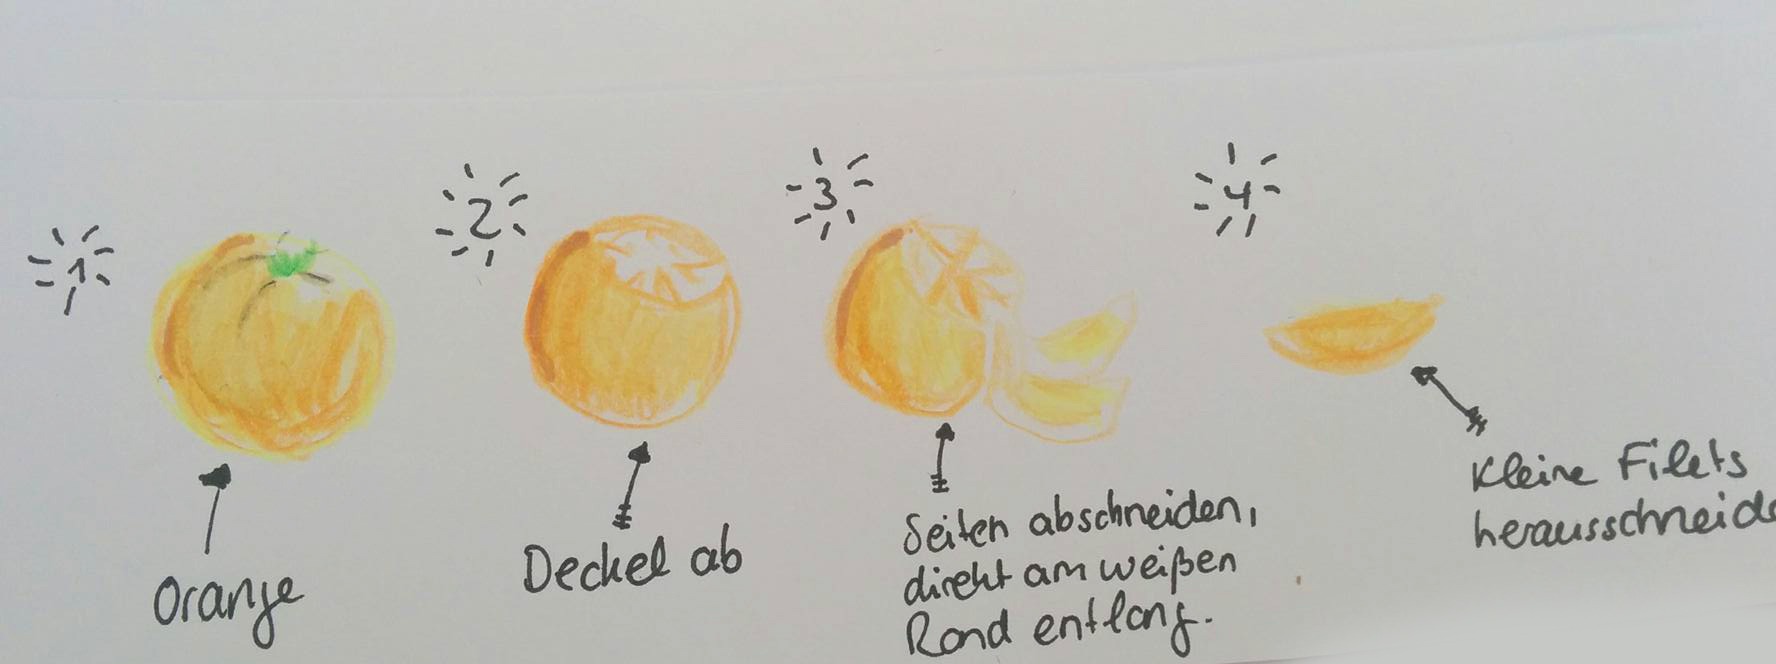 1
2
3
4
Orange
Deckel ab
Seiten abschneiden,
direkt am weißen
Rand entlang.
Kleine Filets
herausschneide